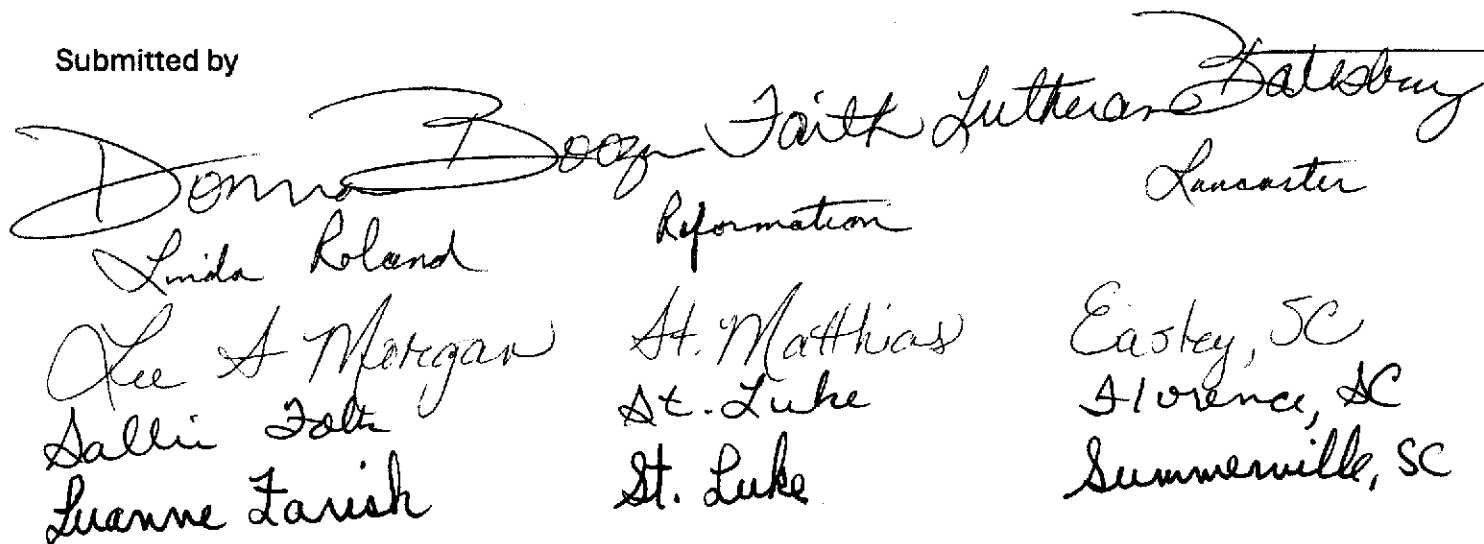 Submitted by
Donna Boozer Faith Lutheran Batesburg
Linda Roland Reformation Lancaster
Lee A Morgan St. Matthias Easley, SC
Sallie Folk St. Luke Florence, SC
Luanne Farish St. Luke Summerville, SC